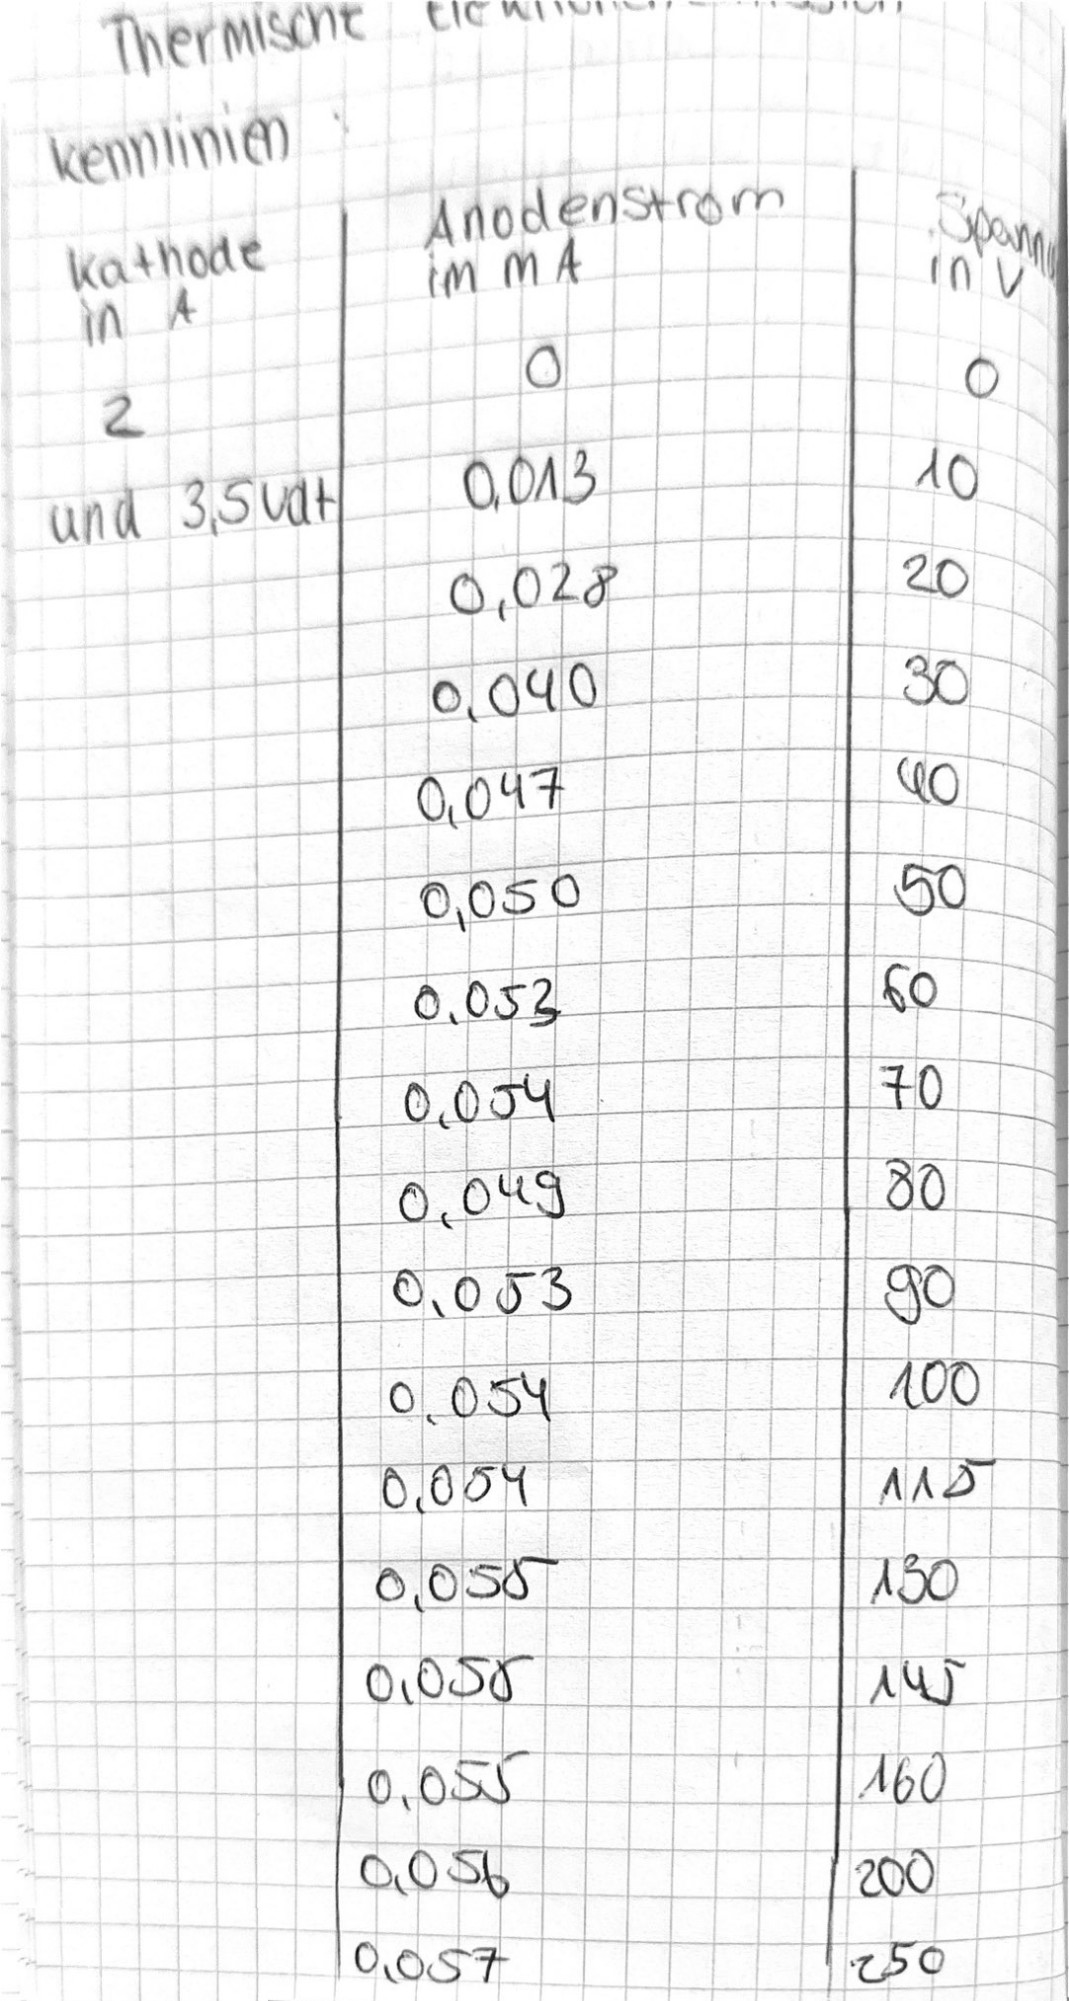 Thermische
Kennlinien :
Kathode in A | Anodenstrom im mA | in V
2 | 0 | 0
und 3,5 Volt | 0,013 | 10
0,028 | 20
0,040 | 30
0,047 | 40
0,050 | 50
0,053 | 60
0,054 | 70
0,049 | 80
0,053 | 90
0,054 | 100
0,054 | 115
0,055 | 130
0,055 | 145
0,055 | 160
0,056 | 200
0,057 | 250